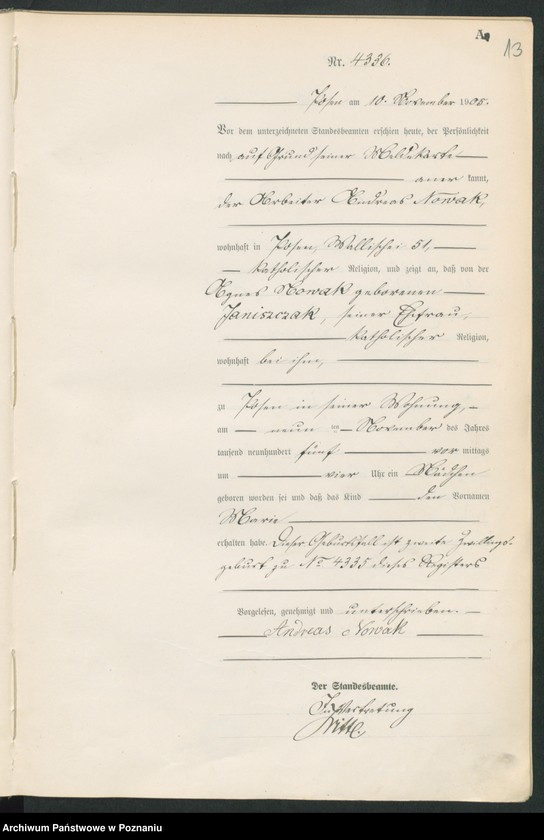 A
13
Nr. 4336.
Posen am 10. November 1905.
Vor dem unterzeichneten Standesbeamten erschien heute, der Persönlichkeit
nach auf Grund seiner Meldekarte
anerkannt,
der Arbeiter Andreas Nowak,
wohnhaft in Posen, Wallischei 51,
katholischer Religion, und zeigt an, daß von der
Agnes Nowak geborenen
Janiszczak, seiner Ehefrau,
katholischer Religion,
wohnhaft bei ihm,
zu Posen in seiner Wohnung,
am neun ten November des Jahres
tausend neunhundert fünf vor mittags
um vier Uhr ein Mädchen
geboren worden sei und daß das Kind den Vornamen
Marie
erhalten habe. Dieser Geburtsfall ist zweite Zwillings-
geburt zu No 4335 dieses Registers
Vorgelesen, genehmigt und unterschrieben.
Andreas Nowak
Der Standesbeamte.
In Vertretung
Archiwum Państwowe w Poznaniu